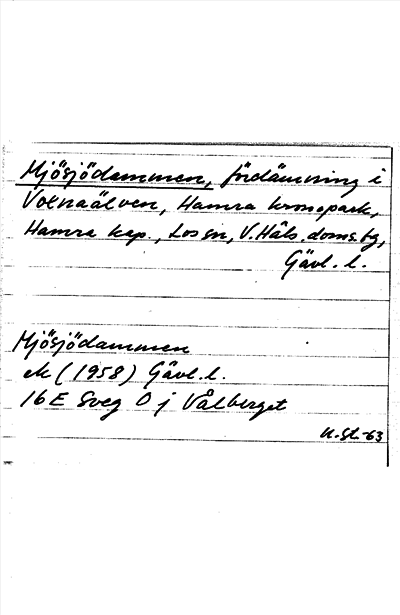 Mjösjödammen, fördämning i
Voxnaälven, Hamra kronopark,
Hamra kap., Los sn, V. Häls. doms.bg,
Gävl. l.
Mjösjödammen
ek (1958) Gävl. l.
16E Sveg 0 j Vålberget
K. St. -63